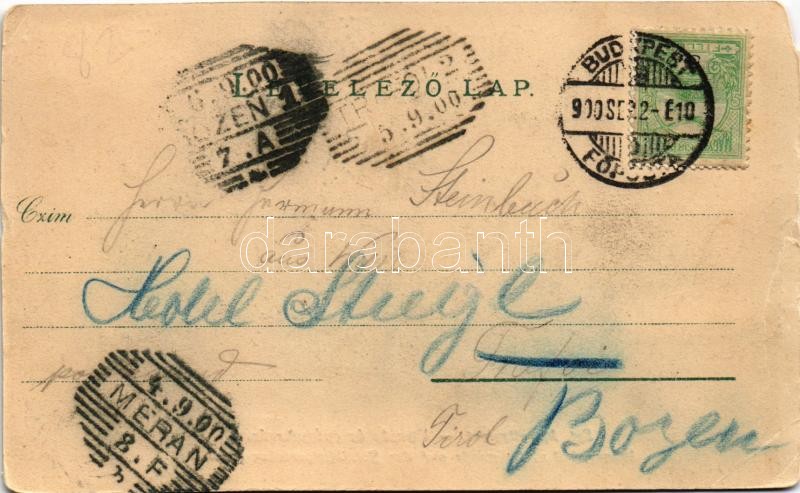 LEVELEZŐ LAP.
BUDAPEST
900 SEP. 2 - E10
FŐPOSTA
6.9.00
BOZEN 1
7.A
5.9.00
Czim
Herrn Hermann Steinbach
aus
darabanth
Hotel Stiegl
Trafoi
Tirol
Bozen
4.9.00
MERAN
8.F